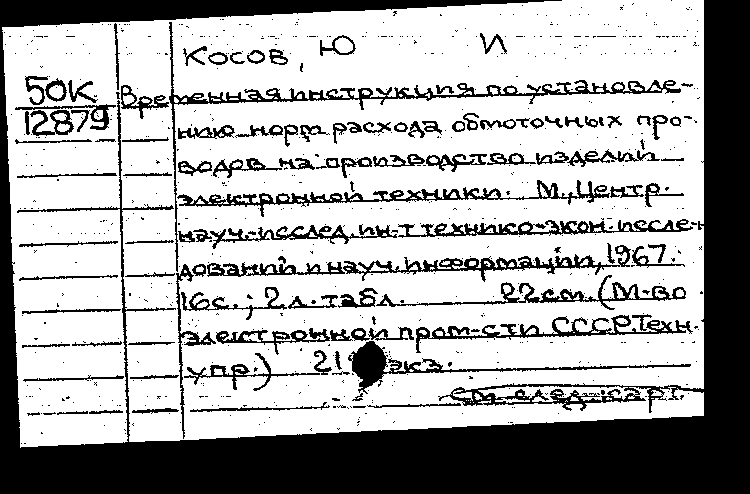 Косов, Ю И
50К
12879
Временная инструкция по установле-
нию норм расхода обмоточных про-
водов на производство изделий
электронной техники. М., Центр.
науч.-исслед. ин-т технико-экон. иссле-
дований и науч. информации, 1967.
16с.; 2л. табл. 22см. (М-во
электронной пром-сти СССР. Техн.
упр.) экз.
см след. карт.